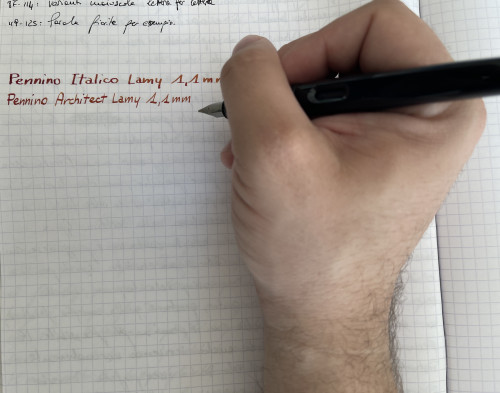 variant maiuscola lettera per lettera
49-125: Parole finite per esempio.
Pennino Italico Lamy 1,1 mm
Pennino Architect Lamy 1,1 mm